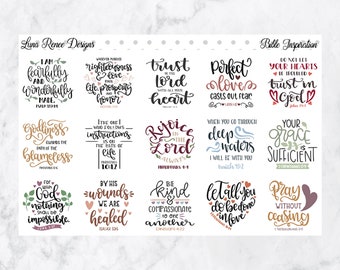 Luna Renee Designs
Bible Inspiration
I AM
fearfully
AND
wonderfully
MADE
righteousness
& love
life, prosperity
and
honor
trust
IN THE
Lord
WITH ALL YOUR
heart
Perfect
love
casts out fear
DO NOT LET
YOUR HEARTS
BE TROUBLED
trust in
God
Godliness
GUARDS THE
PATH OF THE
Blameless
instructions
life
10:17
Rejoice
IN THE
Lord
WHEN YOU GO THROUGH
deep
waters
I WILL BE WITH YOU
YOUR
grace
IS
SUFFICIENT
FOR WITH
God
nothing
SHALL BE
impossible
BY HIS
wounds
WE ARE
healed
ISAIAH 53:5
BE
Kind &
COMPASSIONATE
to one
another
Let all You
do be done
in love
Pray
WITHOUT
ceasing